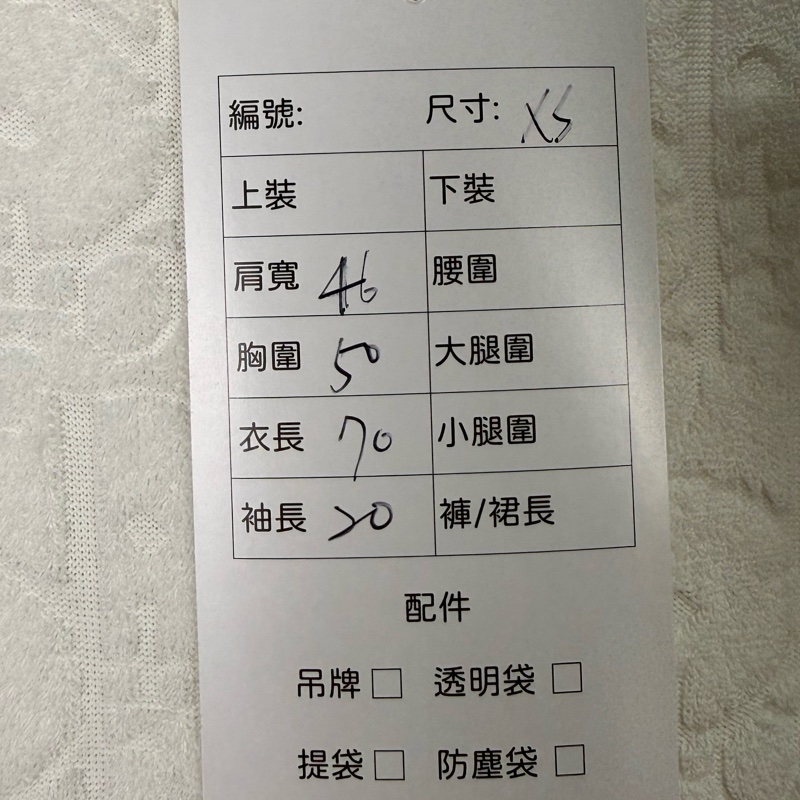 編號: 尺寸: XS
上裝 下裝
肩寬 46 腰圍
胸圍 50 大腿圍
衣長 70 小腿圍
袖長 20 褲/裙長
配件
吊牌□ 透明袋□
提袋□ 防塵袋□